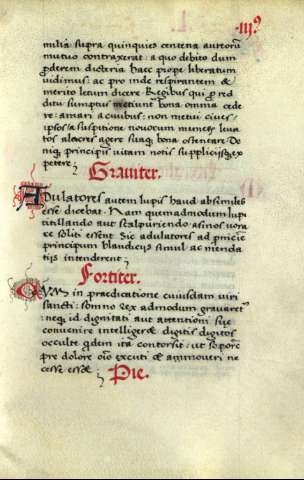 ·III·9
milia supra quinquies centena aureorum
mutuo contraxerat: a quo debito dum
pderem dicteria haec prope liberatum
vidimus: ac pro inde respirantem &
merito letum dicere Regibus qui pro red
ditu sumptus metiunt bona omnia cede
re: amari a civibus: non metu cives
ipsos a suspitione novorum munerum leva
tos alacres agere suaq; bona ostentare De
niq; principii vitam notis suppliciisq; ex
petere;
Graviter.
ADulatores autem lupis haud absimiles
esse dicebat. Nam quemadmodum lupi
titillando aut scalpuriendo asinos vora
re soliti essent Sic adulatores ad pnicie
principum blandiciis simul ac menda
tiis intenderent;
Fortiter.
CUM in praedicatione cuiusdam viri
sancti: somno rex admodum gravaret
neq; id dignitati aut attentioni sue
convenire intelligeret digitis digitos
occulte qdem ita contorsit: ut soporem
pre dolore oio excuti & ammoveri ne
cesse esset;
Pie.